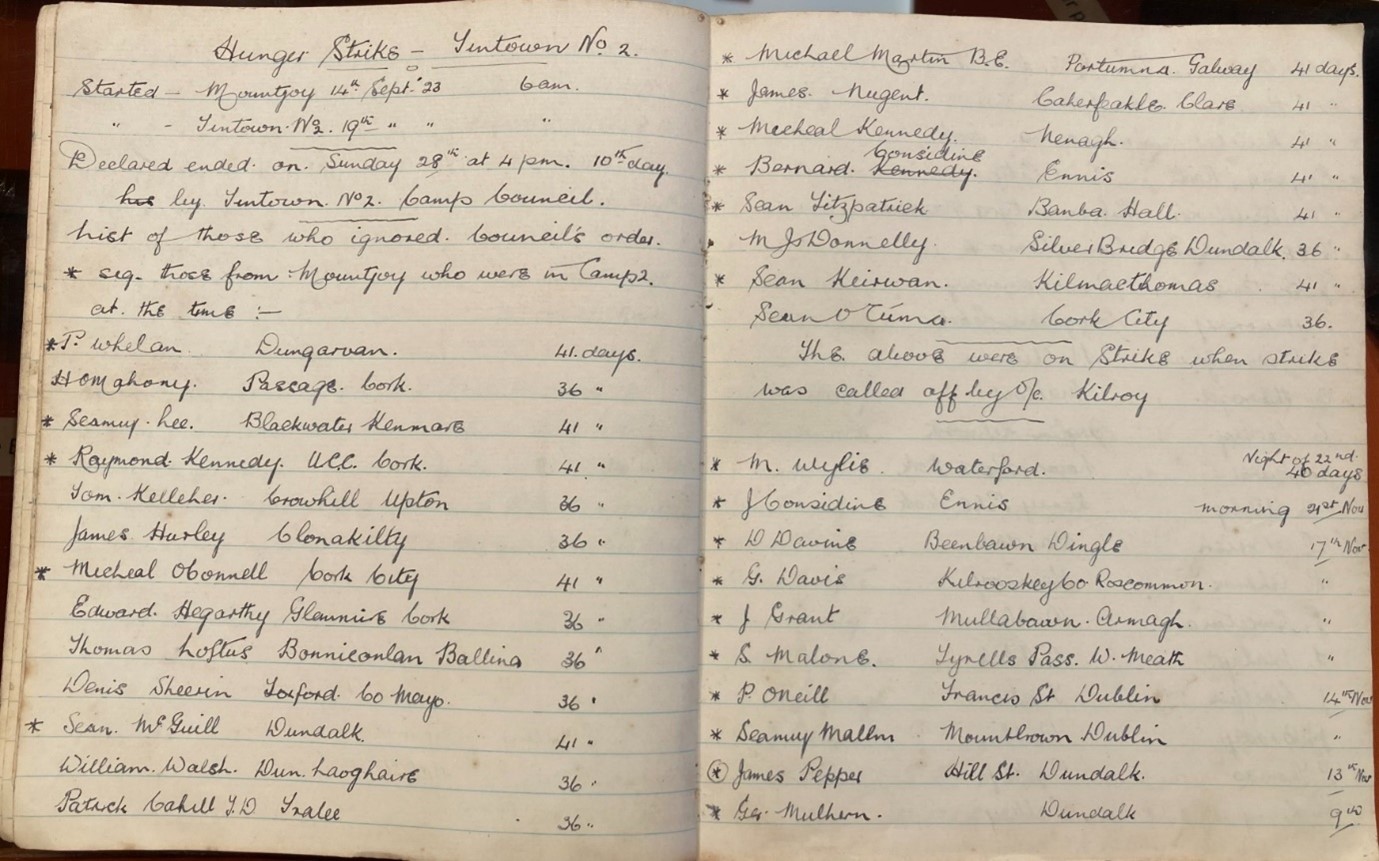 Hunger Strike – Tintown No 2.
Started – Mountjoy 14th Sept. '23 6am.
" - Tintown. No 2. 19th " " "
Declared ended. on. Sunday 28th at 4 pm. 10th day.
by. Tintown. No 2. Camp Council.
List of those who ignored. Council's order.
* sig. those from Mountjoy who were in Camp 2.
at. the time :-
* P. Whelan. Dungarvan. 41. days.
H OMahony. Passage. Cork. 36 "
* Seamuy. Lee. Blackwater Kenmare 41 "
* Raymond. Kennedy. UCC. Cork. 41 "
Tom. Kelleher. Crowhill Upton 36 "
James Hurley Clonakilty 36 "
* Micheal OConnell Cork City 41 "
Edward. Hegarthy Glanmire Cork 36 "
Thomas Loftus Bonniconlan Ballina 36 "
Denis Sheerin Foxford. Co Mayo. 36 "
* Sean. McGuill Dundalk. 41 "
William. Walsh. Dun. Laoghaire 36 "
Patrick Cahill T.D Tralee 36 "
* Michael Martin B.E. Portumna. Galway 41 days.
* James. Nugent. Caherfeakle. Clare 41 "
* Micheal Kennedy. Nenagh. 41 "
Considine
* Bernard. Kennedy. Ennis 41 "
* Sean Fitzpatrick Banba. Hall. 41 "
M Js Donnelly. Silver Bridge Dundalk. 36 "
* Sean Keirwan. Kilmacthomas 41 "
Sean O Tuma. Cork City 36.
The above were on Strike when strike
was called off by O/c. Kilroy
Night of 22nd.
* M. Wylie. Waterford. 40 days
* J Considine Ennis morning 21st Nov
* D Davine Beenbawn Dingle 17th Nov
* G. Davis Kilrooskey Co Roscommon. "
* J Grant Mullabawn. Armagh. "
* S. Malone. Tyrells Pass. W. Meath "
* P. ONeill Francis St Dublin 14th Nov
* Seamuy Mallin Mountbrown Dublin "
* James Pepper Hill St. Dundalk. 13th Nov
* Ger. Mulhern. Dundalk 9th